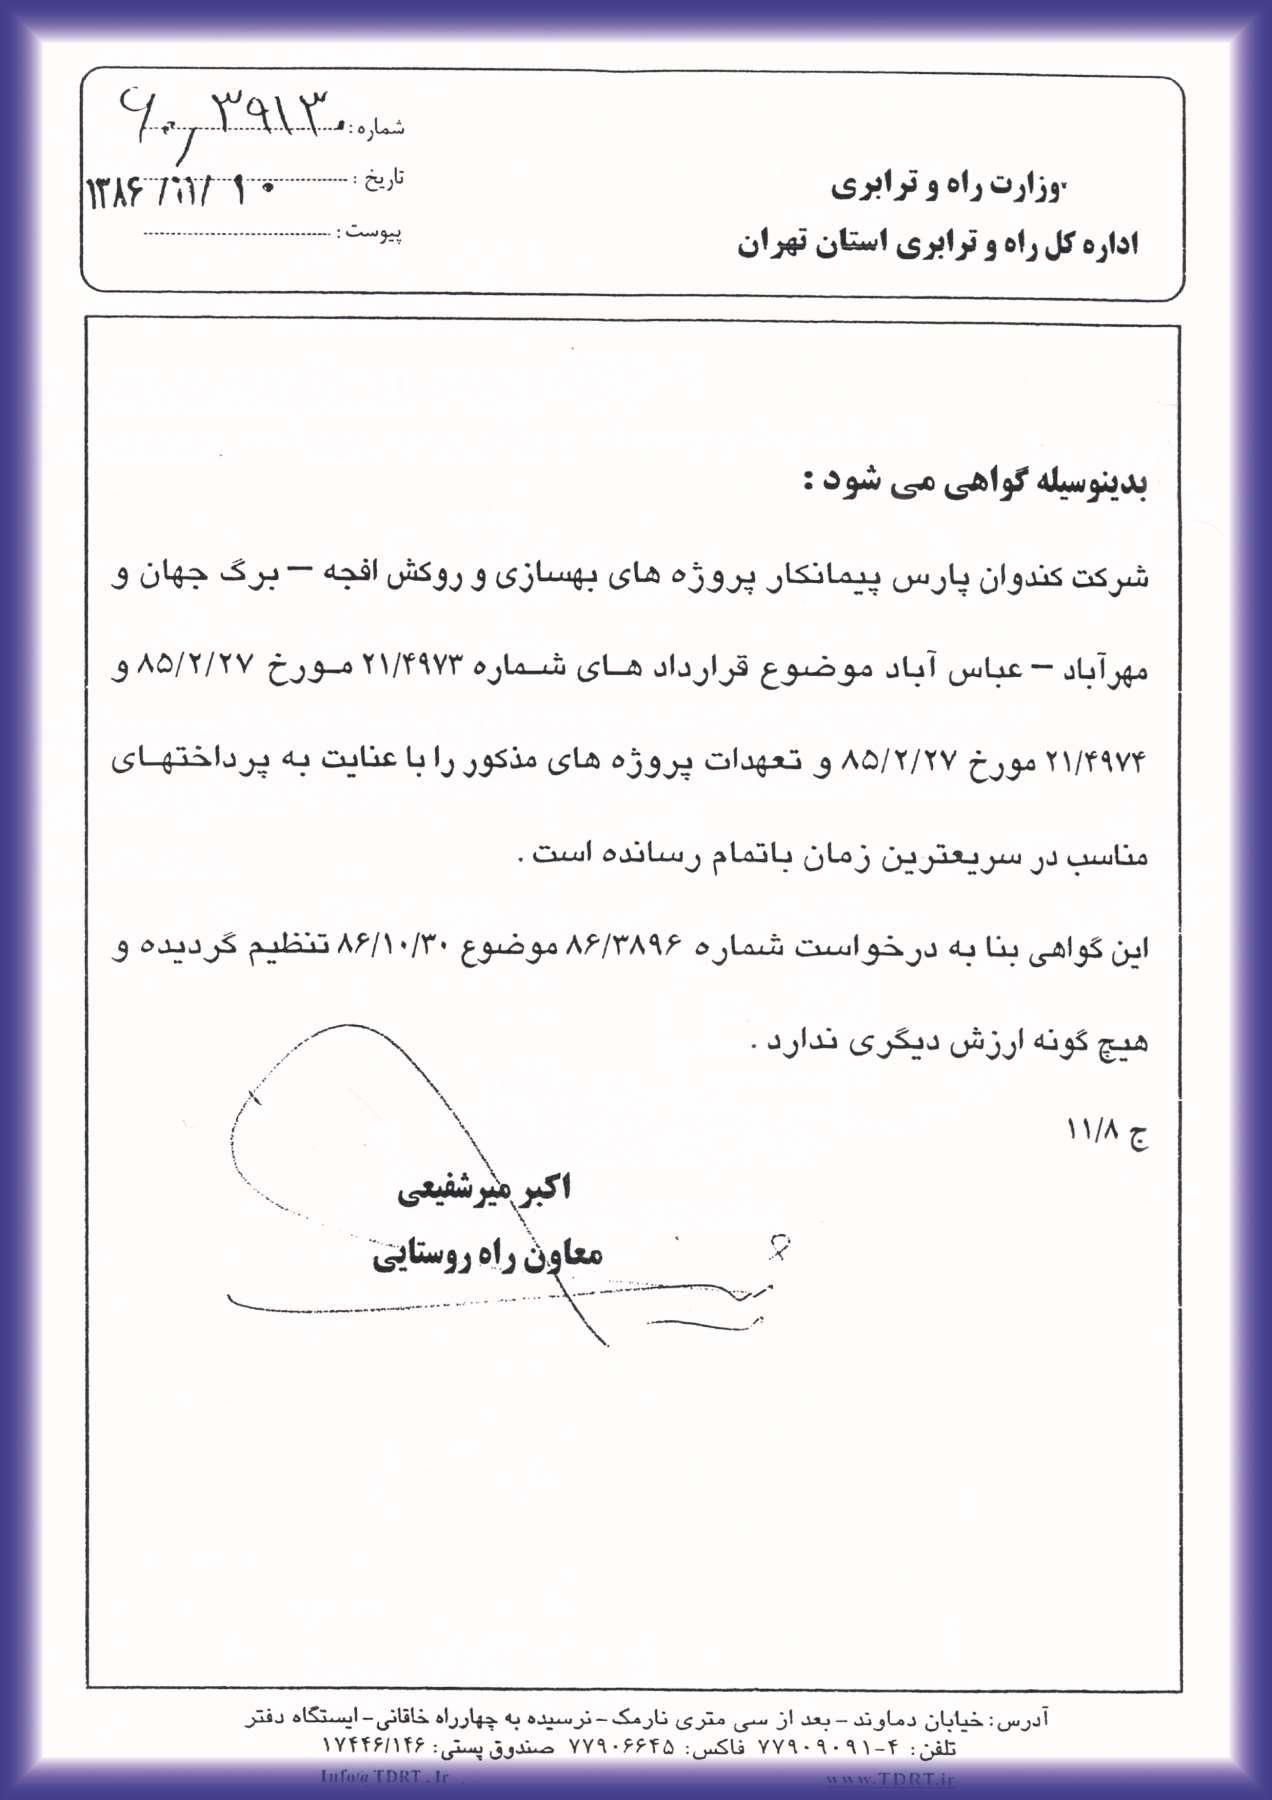 وزارت راه و ترابری
اداره کل راه و ترابری استان تهران
شماره :
تاریخ : ۱۳۸۶ /۱۱/ ۱۰
پیوست :
بدینوسیله گواهی می شود :
شرکت کندوان پارس پیمانکار پروژه های بهسازی و روکش افجه – برگ جهان و
مهرآباد – عباس آباد موضوع قرارداد هـای شـماره ۲۱/۴۹۷۳ مـورخ ۸۵/۲/۲۷ و
۲۱/۴۹۷۴ مورخ ۸۵/۲/۲۷ و تعهدات پروژه های مذکور را با عنایت به پرداختهـای
مناسب در سریعترین زمان باتمام رسانده است .
این گواهی بنا به درخواست شماره ۸۶/۳۸۹۶ موضوع ۸۶/۱۰/۳۰ تنظیم گردیده و
هیچ گونه ارزش دیگری ندارد .
ج ۱۱/۸
اکبر میرشفیعی
معاون راه روستایی
آدرس: خیابان دماوند – بعد از سی متری نارمک – نرسیده به چهارراه خاقانی – ایستگاه دفتر
تلفن: ۴-۷۷۹۰۹۰۹۱ فاکس: ۷۷۹۰۶۶۴۵ صندوق پستی: ۱۷۴۴۶/۱۴۶
www.TDRT.ir Info@TDRT.Ir